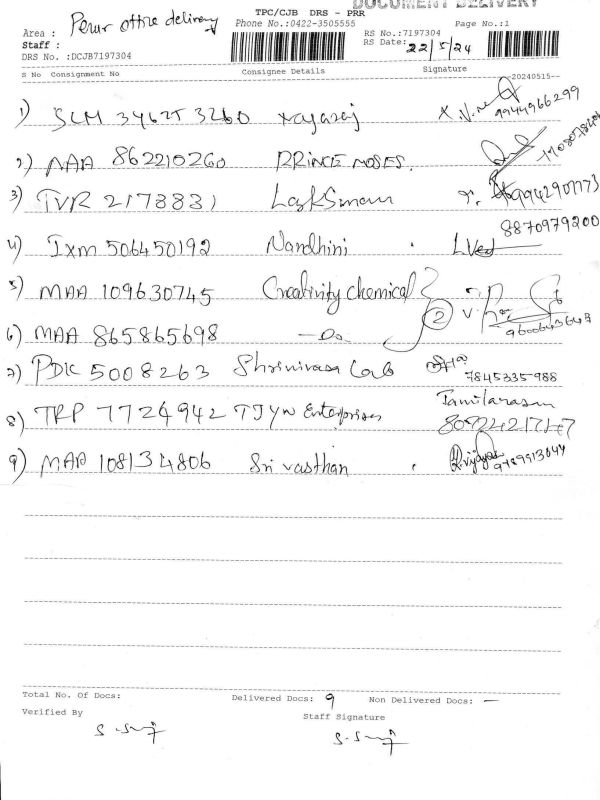 DOCUMENT DELIVERY
TPC/CJB DRS - PRR
Perur office delivery
Area :
Phone No.:0422-3505555
Page No.:1
Staff :
RS No.:7197304
RS Date: 22/5/24
DRS No. :DCJB7197304
S No Consignment No Consignee Details Signature
--20240515--
1) SLM 346253260 Nagaraj
9944966299
2) MAA 862210260 PRINCE MOSES.
3) TVR 2173831 Lakshmanan 9942901173
8870979200
4) Ixm 506450192 Nandhini
5) MAA 109630745 Creativity chemical
2
9600643643
6) MAA 865865698 —Do—
7) PDK 5008263 Shrinivasa Lab
7845335988
8) TRP 7724942 TJYN Enterprises Tamilarasan
8092421747
9) MAA 108134806 Sri vasthan
9789913044
Total No. Of Docs: Delivered Docs: 9 Non Delivered Docs: —
Verified By
Staff Signature